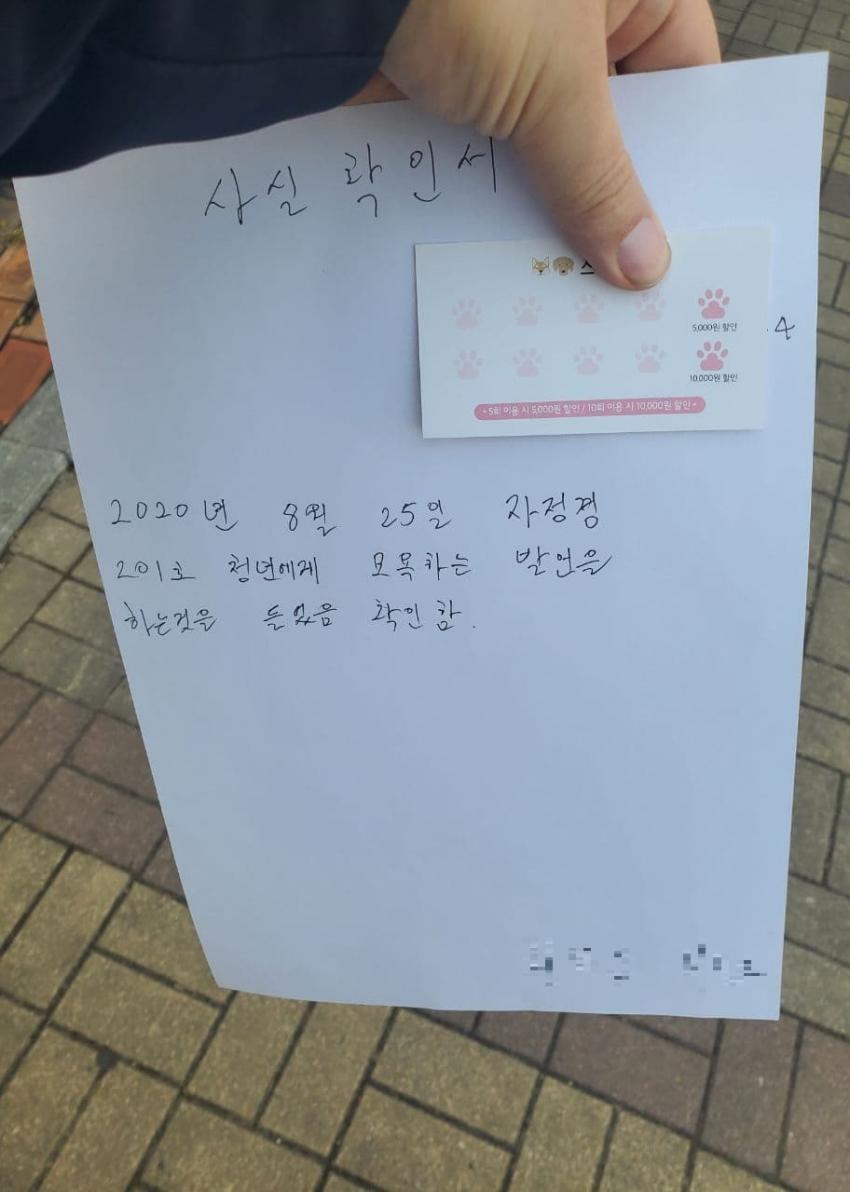 사실 확인서
스
5,000원 할인
4
10,000원 할인
• 5회 이용 시 5,000원 할인 / 10회 이용 시 10,000원 할인 •
2020년 8월 25일 자정경
201호 청년에게 모욕하는 발언을
하는것을 들었음 확인함.